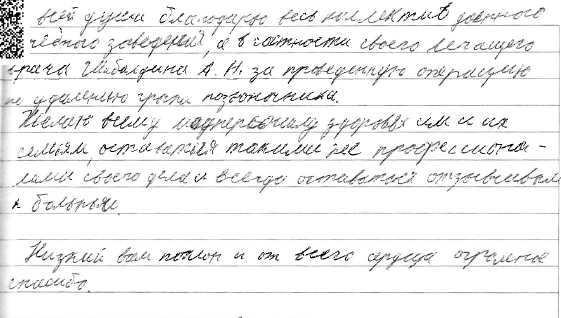 всей души благодарю весь коллектив данного
лечебного заведения, а в частности своего лечащего
врача Шабалдина А. Н. за проведенную операцию
по удалению грыжи позвоночника.
Желаю всему медперсоналу здоровья им и их
семьям, оставаться такими же профессиона-
лами своего дела и всегда оставаться отзывчивым
к больным.
Низкий вам поклон и от всего сердца огромное
спасибо.